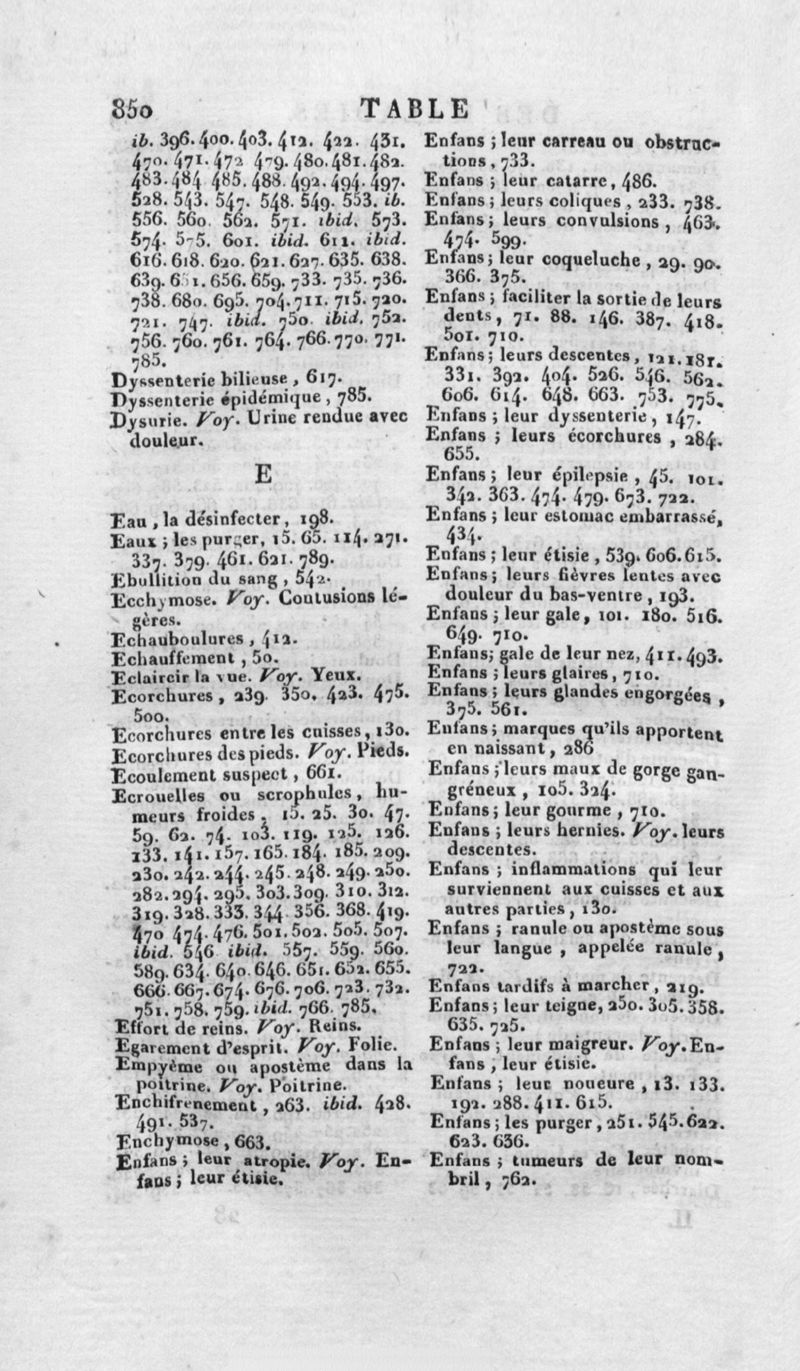 850 TABLE
ib. 396. 400. 403. 412. 422. 431.
470. 471. 472 479. 480. 481. 482.
483. 484 485. 488. 492. 494. 497.
528. 543. 547. 548. 549. 553. ib.
556. 560. 562. 571. ibid. 573.
574. 575. 601. ibid. 611. ibid.
616. 618. 620. 621. 627. 635. 638.
639. 651. 656. 659. 733. 735. 736.
738. 680. 695. 704. 711. 715. 720.
721. 747. ibid. 750. ibid. 752.
756. 760. 761. 764. 766. 770. 771.
785.
Dyssenterie bilieuse , 617.
Dyssenterie épidémique , 785.
Dysurie. Voy. Urine rendue avec
douleur.
E
Eau , la désinfecter , 198.
Eaux ; les purger, 15. 65. 114. 271.
337. 379. 461. 621. 789.
Ebullition du sang , 542.
Ecchymose. Voy. Contusions lé-
gères.
Echauboulures , 412.
Echauffement , 50.
Eclaircir la vue. Voy. Yeux.
Ecorchures , 239. 350. 423. 475.
500.
Ecorchures entre les cuisses, 130.
Ecorchures des pieds. Voy. Pieds.
Ecoulement suspect , 661.
Ecrouelles ou scrophules, hu-
meurs froides , 15. 25. 30. 47.
59. 62. 74. 103. 119. 125. 126.
133. 141. 157. 165. 184. 185. 209.
230. 242. 244. 245. 248. 249. 250.
282. 294. 295. 303. 309. 310. 312.
319. 328. 333. 344. 356. 368. 419.
470 474. 476. 501. 502. 505. 507.
ibid. 546 ibid. 557. 559. 560.
589. 634. 640. 646. 651. 652. 655.
666. 667. 674. 676. 706. 723. 732.
751. 758. 759. ibid. 766. 785.
Effort de reins. Voy. Reins.
Egarement d'esprit. Voy. Folie.
Empyème ou apostème dans la
poitrine. Voy. Poitrine.
Enchifrenement , 263. ibid. 428.
491. 537.
Enchymose , 663.
Enfans ; leur atropie. Voy. En-
fans ; leur étisie.
Enfans ; leur carreau ou obstruc-
tions , 733.
Enfans ; leur catarre , 486.
Enfans ; leurs coliques , 233. 738.
Enfans ; leurs convulsions , 463.
474. 599.
Enfans ; leur coqueluche , 29. 90.
366. 375.
Enfans ; faciliter la sortie de leurs
dents , 71. 88. 146. 387. 418.
501. 710.
Enfans ; leurs descentes , 121. 181.
331. 392. 404. 526. 546. 562.
606. 614. 648. 663. 753. 775.
Enfans ; leur dyssenterie , 147.
Enfans ; leurs écorchures , 284.
655.
Enfans ; leur épilepsie , 45. 101.
342. 363. 474. 479. 673. 722.
Enfans ; leur estomac embarrassé,
434.
Enfans ; leur étisie , 539. 606. 615.
Enfans ; leurs fièvres lentes avec
douleur du bas-ventre , 193.
Enfans ; leur gale , 101. 180. 516.
649. 710.
Enfans ; gale de leur nez, 411. 493.
Enfans ; leurs glaires , 710.
Enfans ; leurs glandes engorgées ,
375. 561.
Enfans ; marques qu'ils apportent
en naissant , 286
Enfans ; leurs maux de gorge gan-
gréneux , 105. 324.
Enfans ; leur gourme , 710.
Enfans ; leurs hernies. Voy. leurs
descentes.
Enfans ; inflammations qui leur
surviennent aux cuisses et aux
autres parties , 130.
Enfans ; ranule ou apostème sous
leur langue , appelée ranule ,
722.
Enfans tardifs à marcher , 219.
Enfans ; leur teigne, 250. 305. 358.
635. 725.
Enfans ; leur maigreur. Voy. En-
fans , leur étisie.
Enfans ; leur noueure , 13. 133.
192. 288. 411. 615.
Enfans ; les purger , 251. 545. 622.
623. 636.
Enfans ; tumeurs de leur nom-
bril , 762.